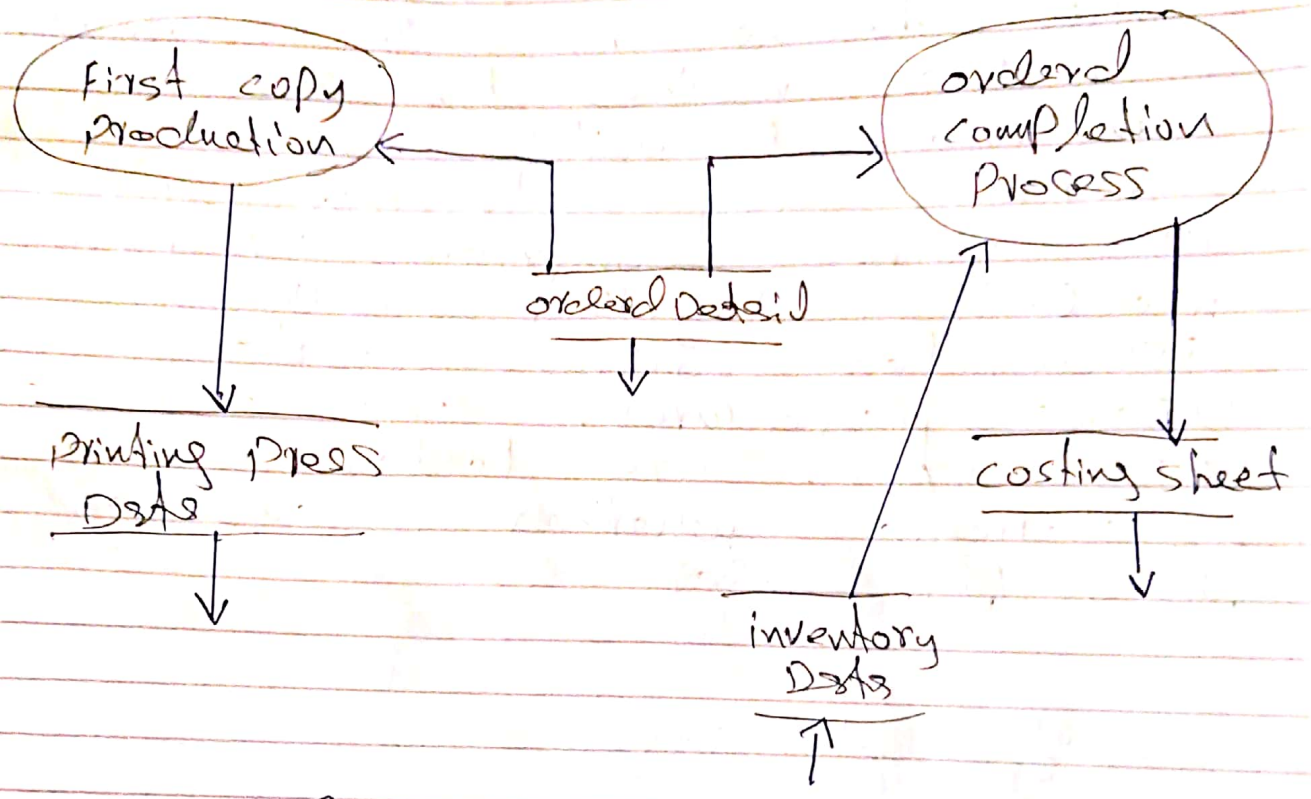 First copy
production
orderd
completion
Process
orderd Detail
printing press
Data
costing sheet
inventory
Data